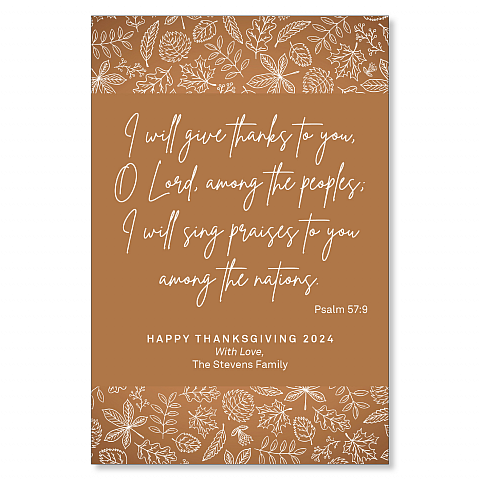 I will give thanks to you,
O Lord, among the peoples;
I will sing praises to you
among the nations.
Psalm 57:9
HAPPY THANKSGIVING 2024
With Love,
The Stevens Family